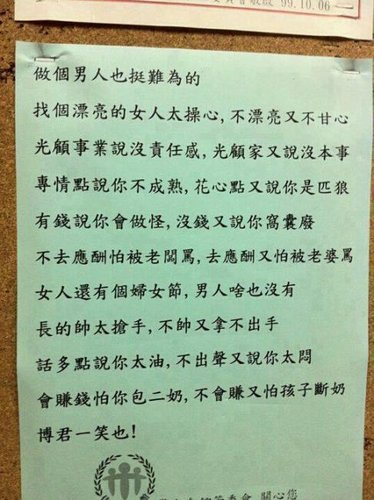 99.10.06
做個男人也挺難為的
找個漂亮的女人太操心,不漂亮又不甘心
光顧事業說沒責任感,光顧家又說沒本事
專情點說你不成熟,花心點又說你是匹狼
有錢說你會做怪,沒錢又說你窩囊廢
不去應酬怕被老闆罵,去應酬又怕被老婆罵
女人還有個婦女節,男人啥也沒有
長的帥太搶手,不帥又拿不出手
話多點說你太油,不出聲又說你太悶
會賺錢怕你包二奶,不會賺又怕孩子斷奶
博君一笑也!
關心您